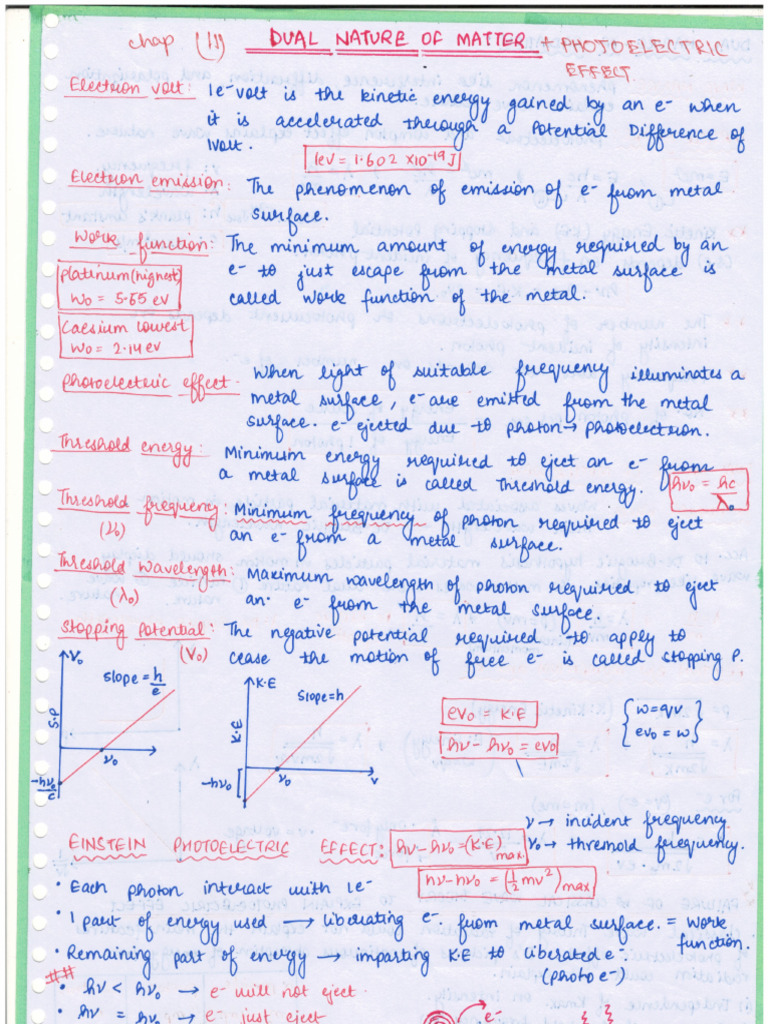 chap (11) DUAL NATURE OF MATTER + PHOTOELECTRIC
EFFECT
Electron volt: 1e-volt is the kinetic energy gained by an e- when
it is accelerated through a Potential Difference of
1volt.
1ev = 1.602 ×10-19 J
Electron emission: The phenomenon of emission of e- from metal
surface.
Work function: The minimum amount of energy required by an
e- to just escape from the metal surface is
called work function of the metal.
Platinum(highest)
W₀ = 5.65 ev
Caesium lowest
W₀ = 2.14 ev
Photoelectric effect. When light of suitable frequency illuminates a
metal surface, e- are emitted from the metal
surface. e- ejected due to photon → photoelectron.
Threshold energy: Minimum energy required to eject an e- from
a metal surface is called threshold energy. hν₀ = hc/λ₀
Threshold frequency: Minimum frequency of photon required to eject
(ν₀) an e- from a metal surface.
Threshold Wavelength: Maximum wavelength of photon required to eject
(λ₀) an e- from the metal surface.
Stopping Potential: The negative potential required to apply to
(V₀) cease the motion of free e- is called stopping P.
V₀
slope = h/e
S.P
ν₀
-hν₀/c
K.E
slope = h
K.E
ν₀
ν
-hν₀
eV₀ = K.E
hν - hν₀ = eV₀
{ W = qV
eV₀ = W }
ν → incident frequency
ν₀ → threshold frequency.
EINSTEIN PHOTOELECTRIC EFFECT: hν - hν₀ = (K.E) max.
hν - hν₀ = (1/2 mv²) max
• Each photon interact with 1e-
• 1 part of energy used → liberating e- from metal surface. = work
function.
• Remaining part of energy → imparting K.E to liberated e-
(photo e-)
##
• hν < hν₀ → e- will not eject.
• hν = hν₀ → e- just eject
e-